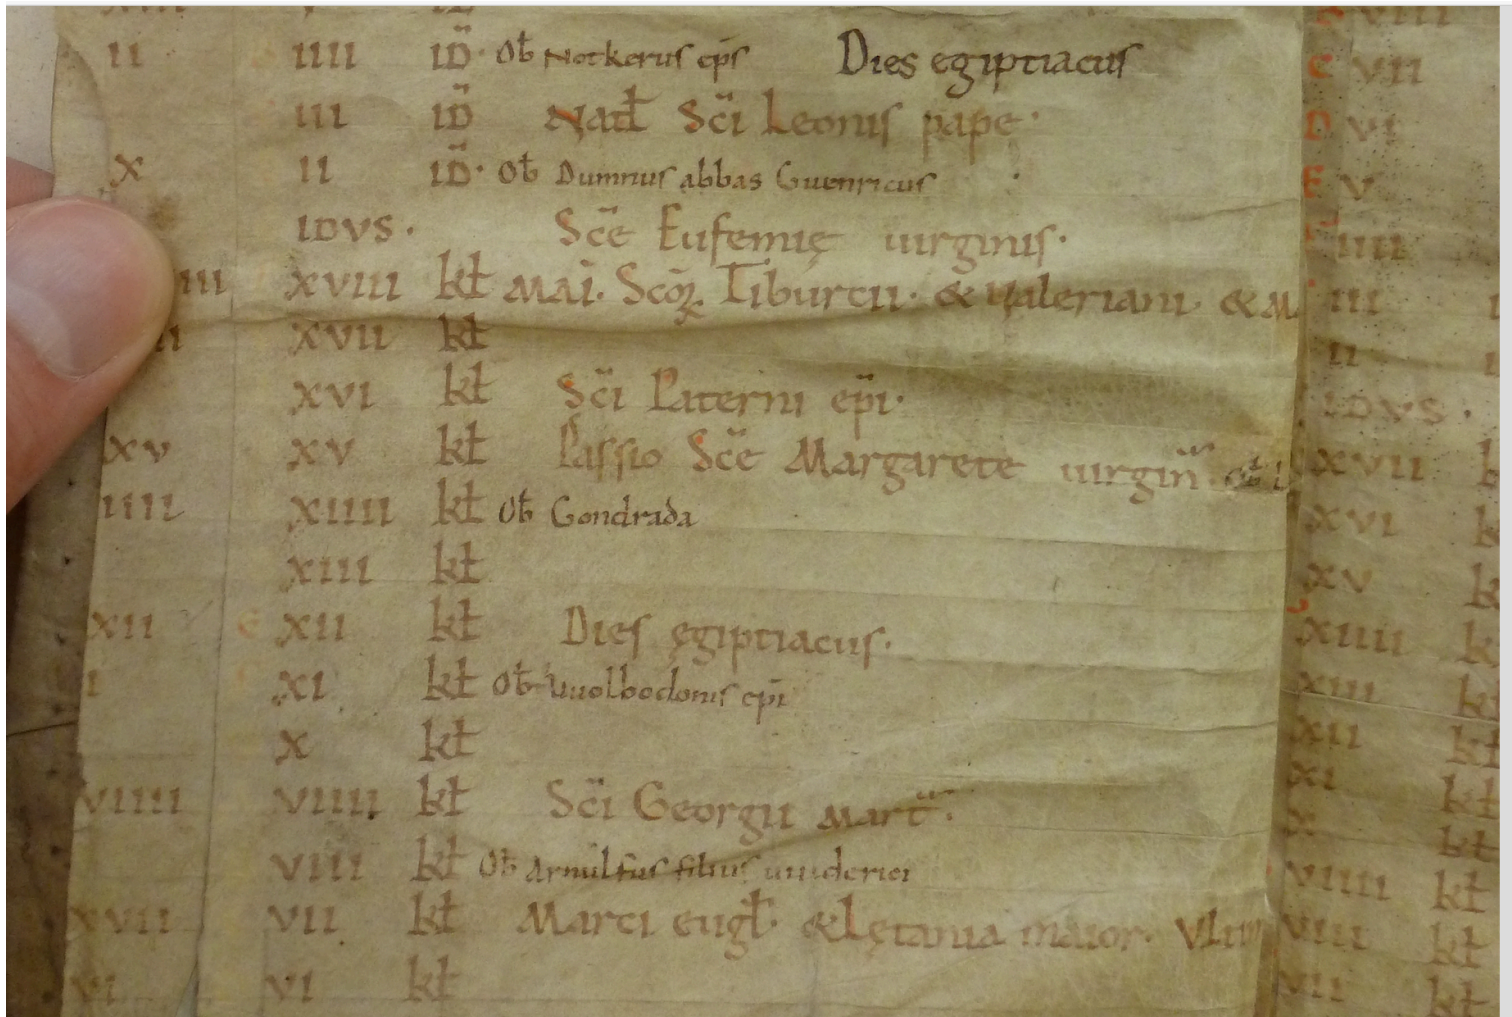 II IIII ID· Ob Notkerus eps Dies egiptiacus
III ID Natł Sci Leonis pape·
X II ID· Ob Dumnus abbas Guenricus
IDVS· Sce Eufemię uirginis·
III XVIII kł MAI· Scoꝝ Tiburtii· & Ualeriani & M
II XVII kł
XVI kł Sci Paterni epi·
XV XV kł Passio Sce Margarete uirgin·
IIII XIIII kł Ob Gondrada
XIII kł
XII E XII kł Dies ęgiptiacus·
I XI kł Ob Uuolbodonis epi
X kł
VIIII VIIII kł Sci Georgii mart·
VIII kł Ob Arnulfus filius
XVII VII kł Marci eugł· & Lętania maior·
VI VI kł
VIII
C VII
D VI
E V
IIII
III
II
IDVS·
XVII k
XVI k
XV k
XIIII k
XIII kł
XII kł
XI kł
X kł
VIIII kł
VIII kł
VII kł